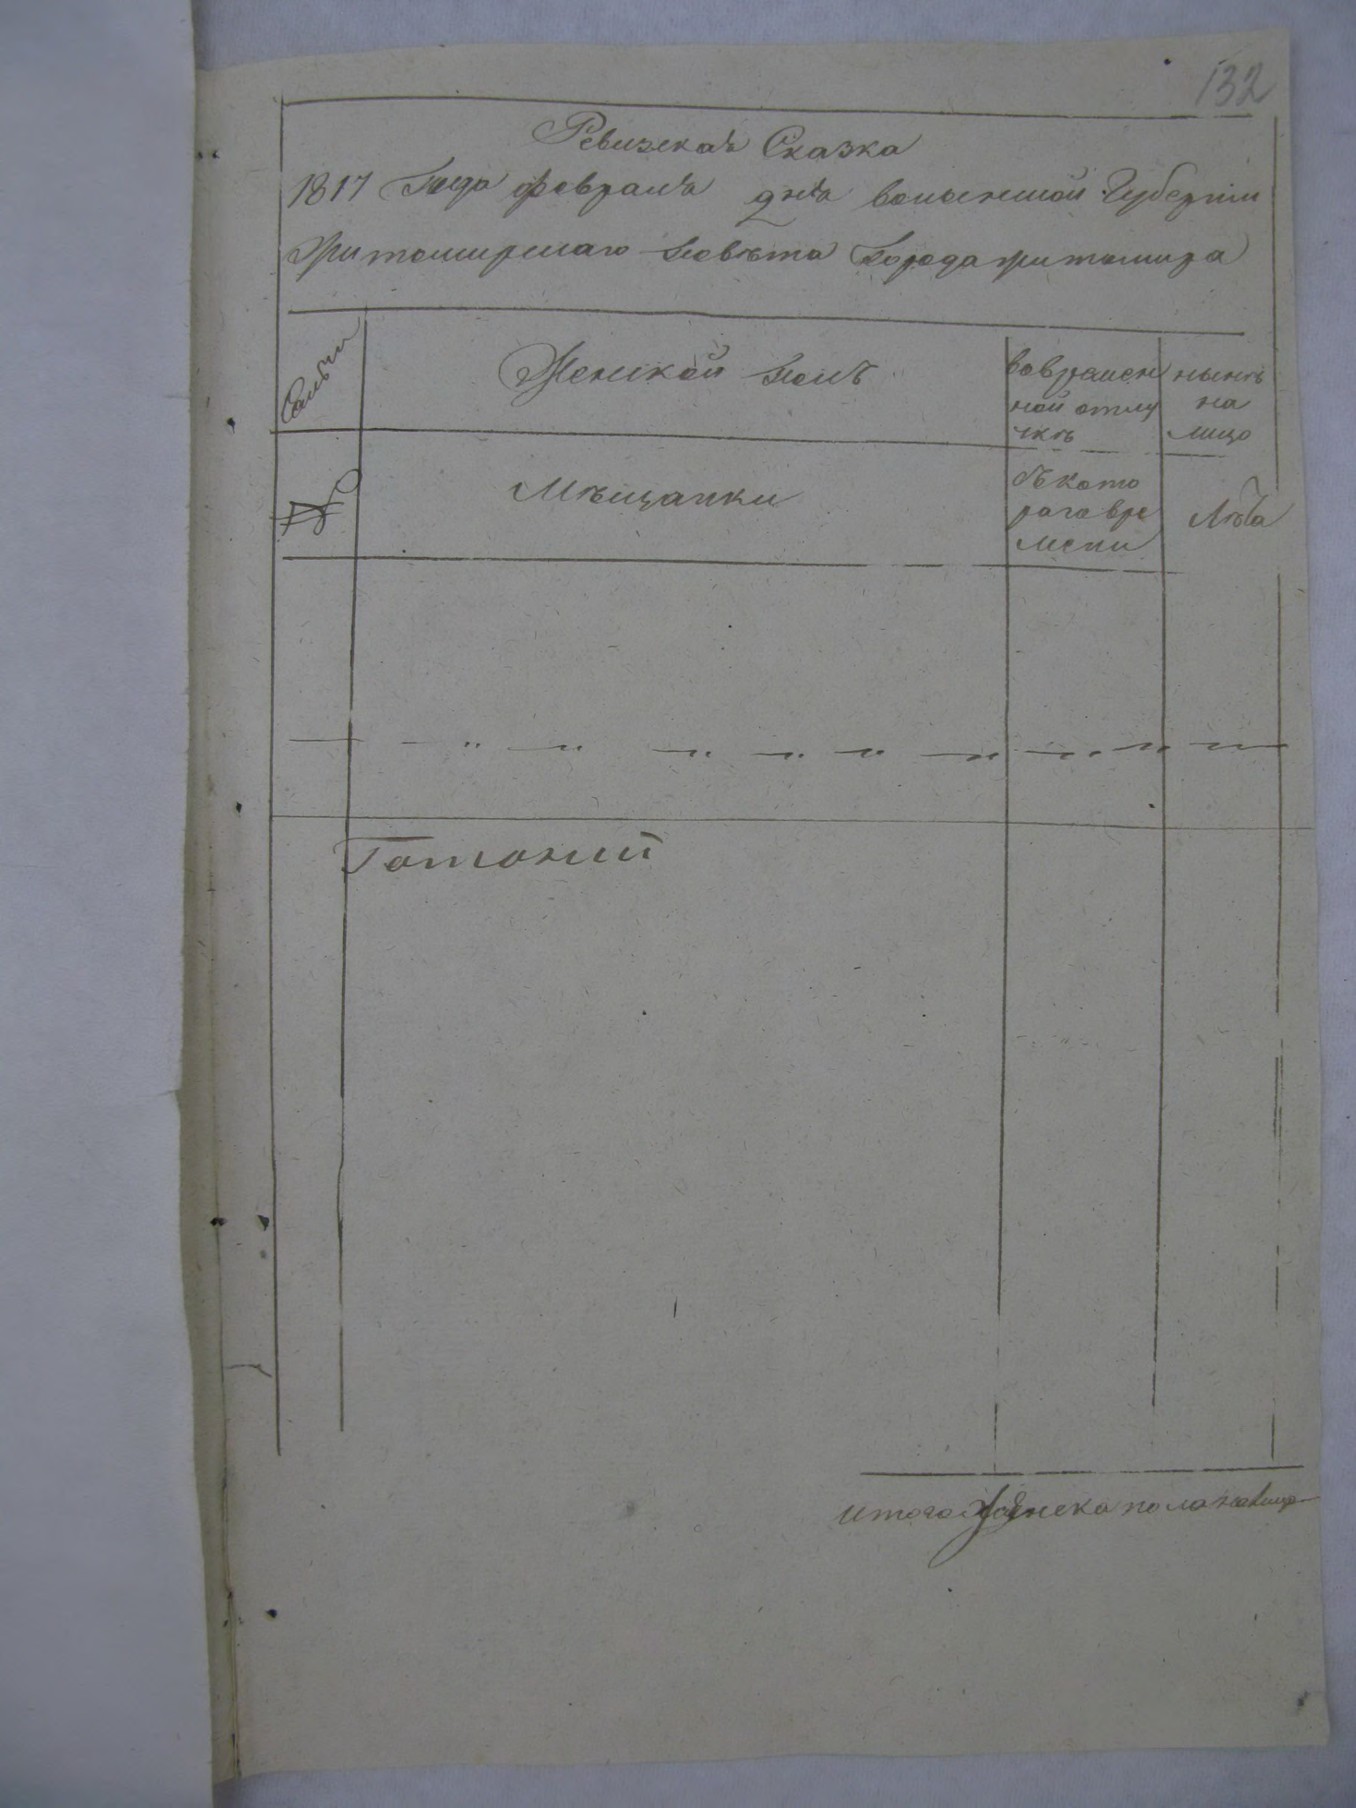 132
Ревизская Сказка
1817 Года февраля дня волынской Губернии
житомирскаго повѣта Города житомира
Семьи
Женской полъ
вовремен
ной отлу
чкѣ
нынѣ
на
лицо
№
Мѣщанки
съ кото
раго вре
мени
Лѣта
итого женска пола налицо